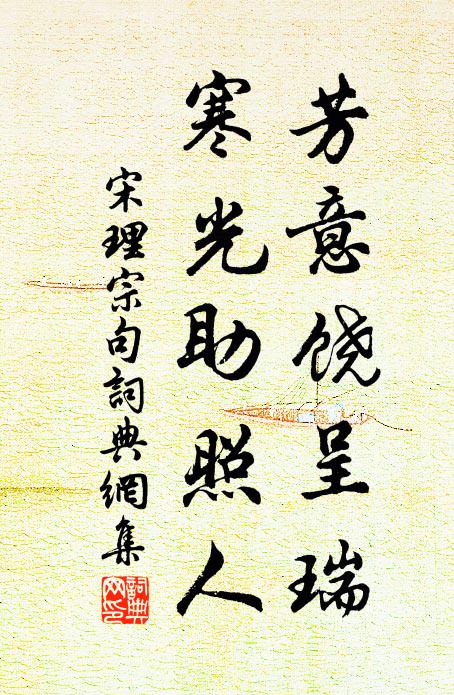 芳意饶呈瑞
寒光助照人
宋理宗句詞典網集
詞典網印